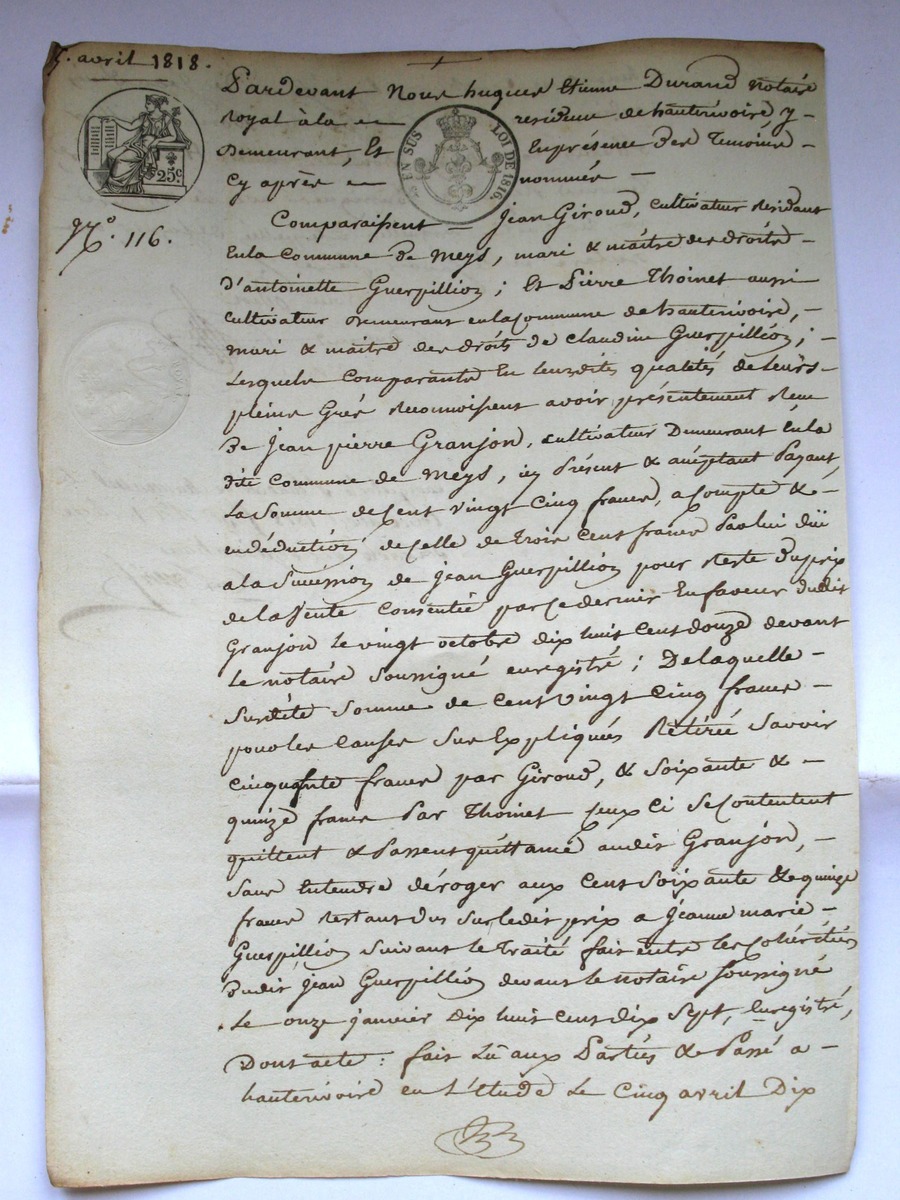 5. avril 1818.
25c
EN SUS LOI DE 1816.
N.° 116.
Pardevant Nous hugues Etienne Durand notaire
royal à la residence de hauterivoire y
demeurant, Et En présence des Temoins
cy après nommés
Comparaissent Jean Giroud, cultivateur Residant
En la Commune de Meys, mari & maître des droits
d'antoinette Guerpillion; Et Pierre Thoinet aussi
cultivateur demeurant en la Commune de hauterivoire,
mari & maitre des droits de claudine Guerpillion;
Lesquels Comparants En leurs dites qualetés de leurs
pleins Grés Reconnoissent avoir présentement Recu
De Jean pierre Granjon, cultivateur Demeurant En la
dite Commune de Meys, icy Présent & acceptant Payant,
La Somme de Cent vingt Cinq francs, a Compte &
en déduction de Celle de trois Cent francs Par lui dü
a la Sucession de Jean Guerpillion pour Reste du prix
de la Vente Consentie par ce dernier En faveur dudit
Granjon le vingt octobre dix huit Cent douze devant
le notaire Soussigné enregistré; De laquelle
Susdite Somme de Cent vingt Cinq francs
pour les Causes Sus Expliqués Retirée Savoir
Cinquante francs par Giroud, & Soixante &
quinze francs Par Thoinet Ceux Ci Se Contentent
quittent & Passent quittance audit Granjon,
Sans Entendre déroger aux Cent Soixante & quinze
francs Restant dus Sur ledit prix a Jeanne marie
Guerpillion Suivant le traité fait entre les Cohéritiers
Dudit Jean Guerpillion devant le notaire Soussigné
Le onze janvier Dix huit Cent dix Sept, Enregistré,
Dont acte: fait Lû aux Parties & Passé a
hauterivoire en L'Etude Le Cinq avril Dix